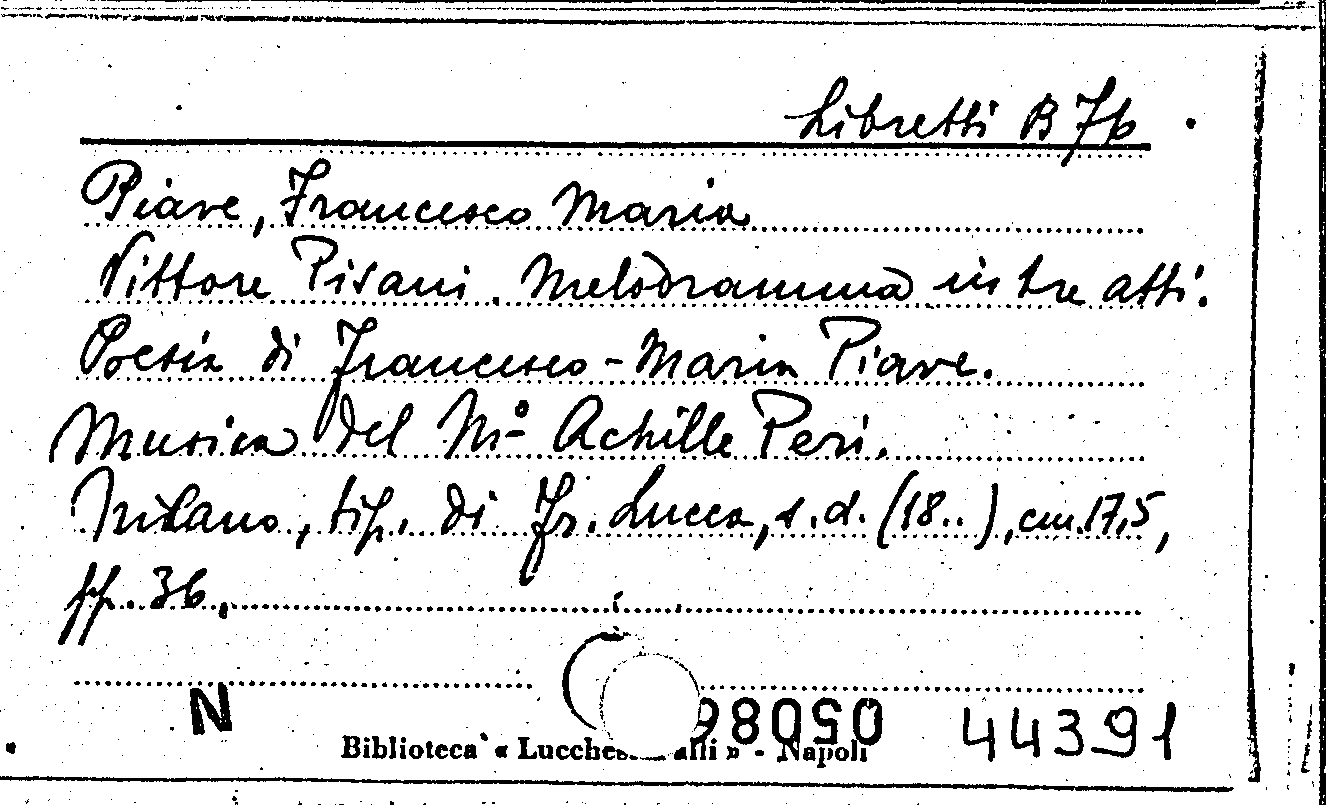 Libretti B 76
Piave, Francesco Maria
Vittore Pisani. Melodramma in tre atti.
Poesia di Francesco-Maria Piave.
Musica del Mº Achille Peri.
Milano, tip. di Fr. Lucca, s.d. (18..), cm. 17,5,
pp. 36.
N
44391
Biblioteca « Lucches alli » - Napoli